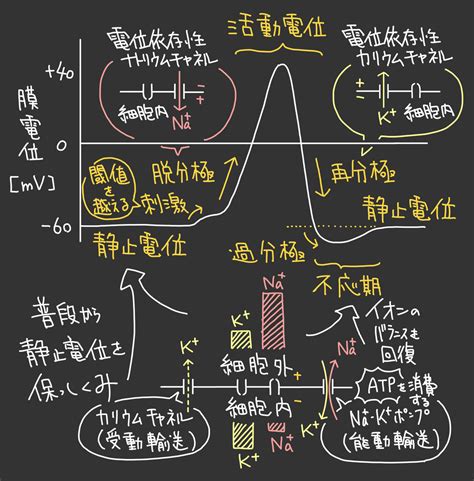 活動電位
電位依存性
ナトリウムチャネル
細胞内
Na⁺
電位依存性
カリウムチャネル
K⁺
細胞内
膜電位
[mV]
+40
0
-60
閾値を
越える
刺激
脱分極
再分極
静止電位
静止電位
過分極
不応期
普段から
静止電位を
保つしくみ
K⁺
Na⁺
K⁺
細胞外
細胞内
K⁺
Na⁺
カリウムチャネル
(受動輸送)
イオンの
バランスを
回復
Na⁺
K⁺
ATPを消費
する
Na⁺-K⁺ポンプ
(能動輸送)